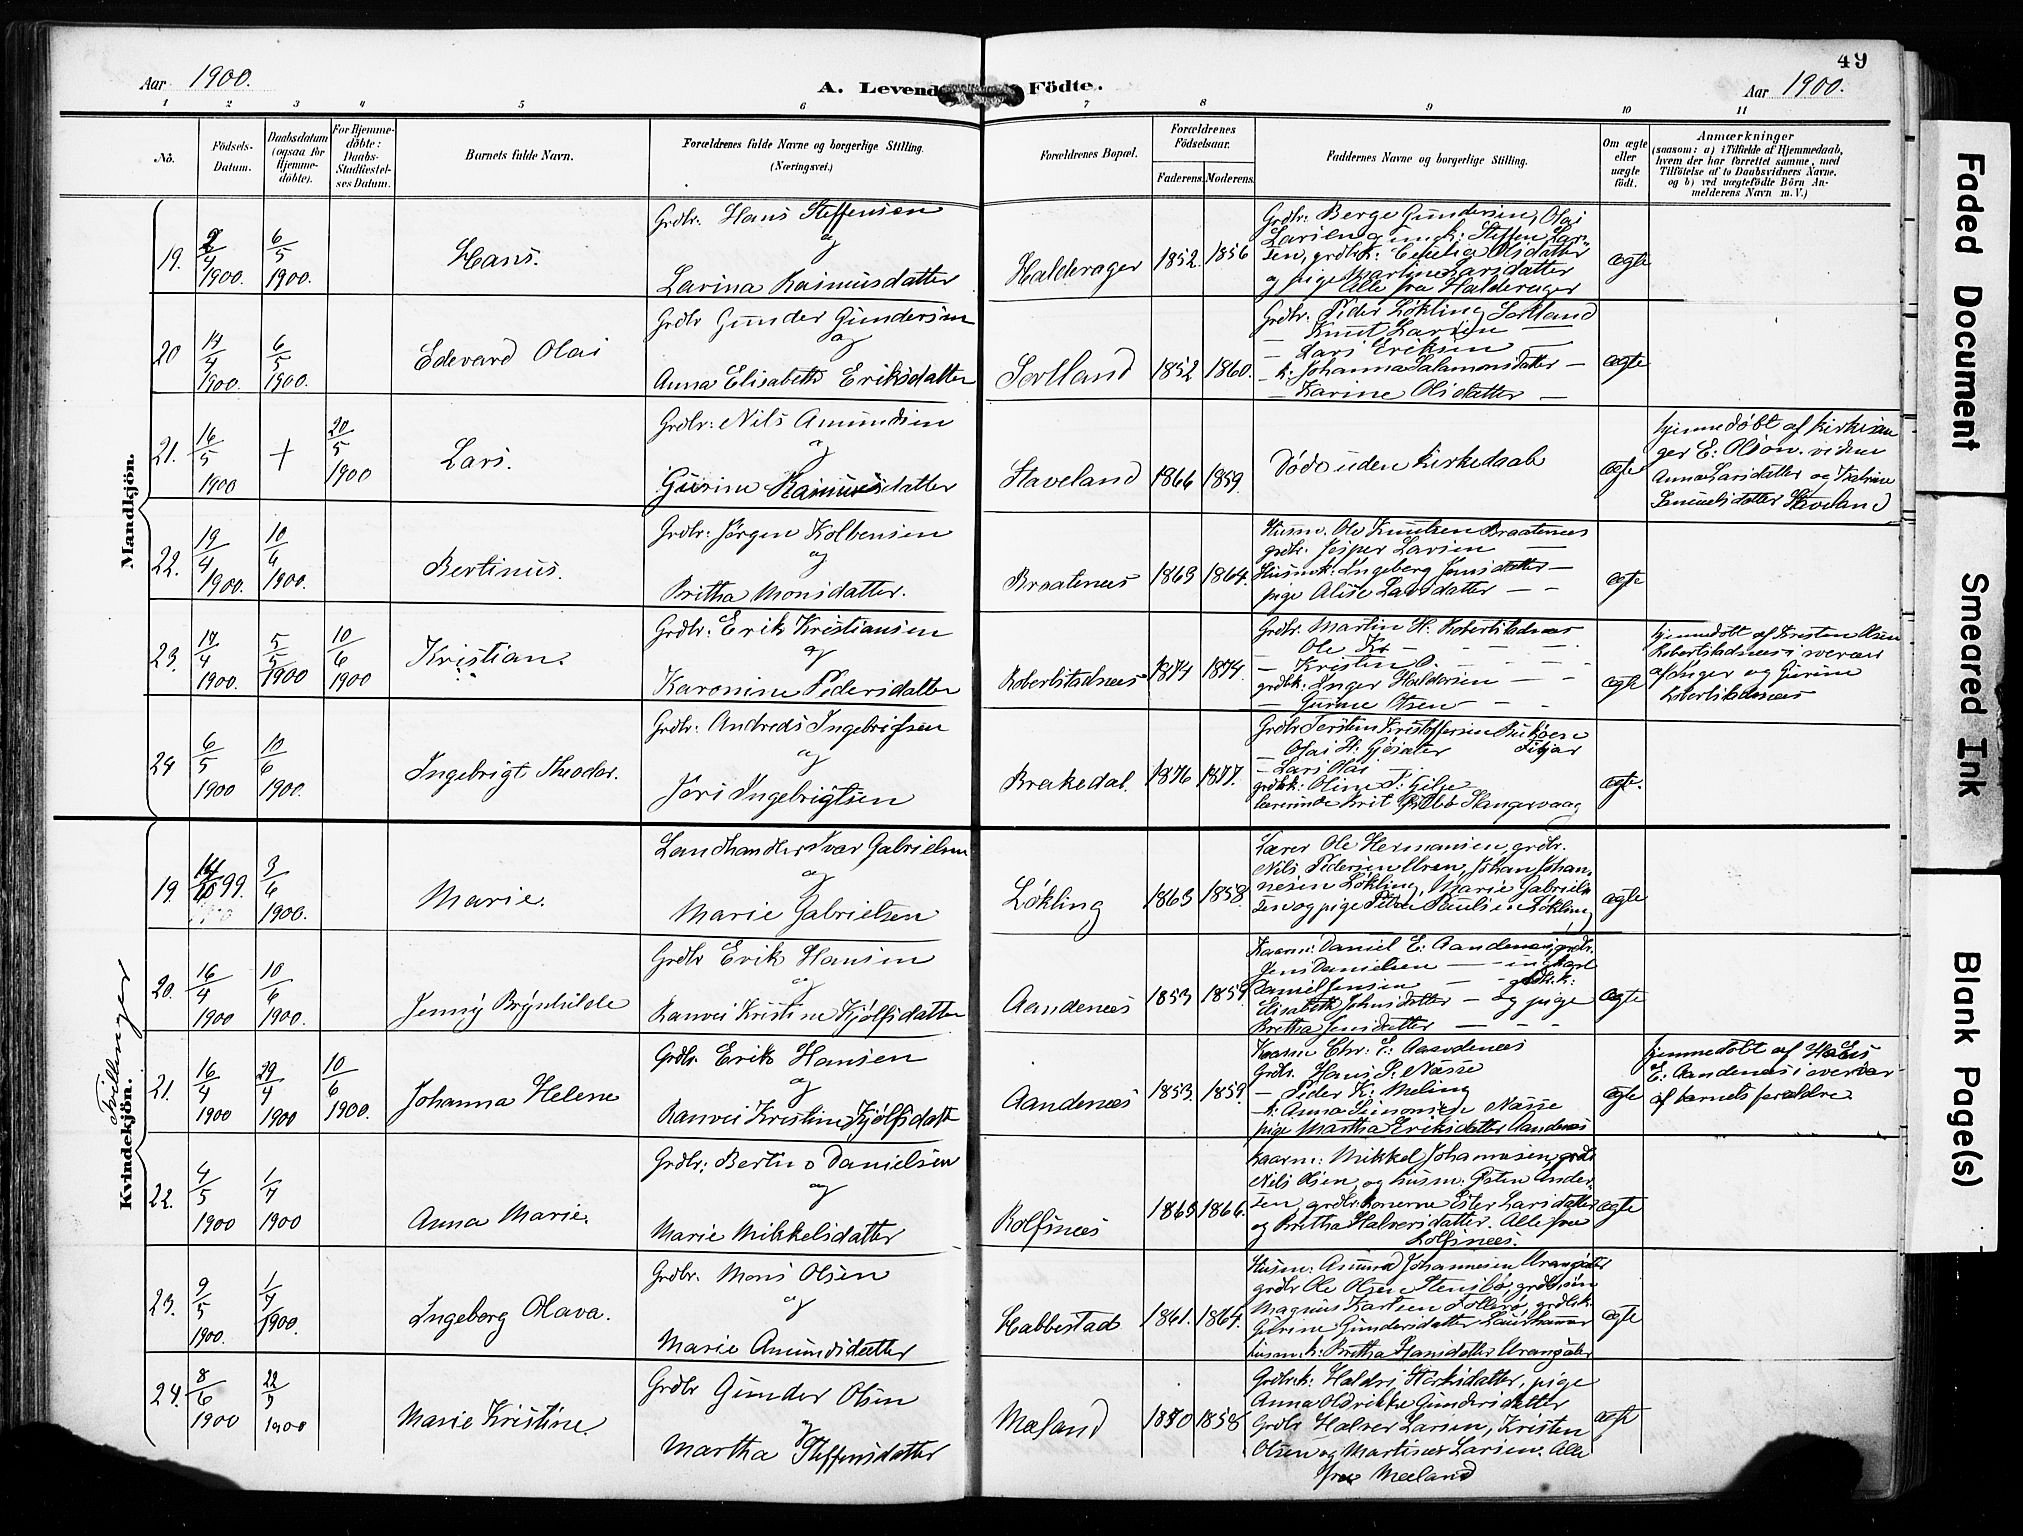 49
Aar 1900.
A. Levende Födte.
Aar 1900.
1 2 3 4 5 6 7 8 9 10 11
No.
Födsels-Datum.
Daabsdatum (ogsaa for Hjemme-döbte).
For Hjemme-döbte: Daabs-Stadfæstel-ses Datum.
Barnets fulde Navn.
Forældrenes fulde Navne og borgerlige Stilling.
(Næringsvei.)
Forældrenes Bopæl.
Forældrenes Födselsaar.
Faderens. Moderens.
Faddernes Navne og borgerlige Stilling.
Om ægte eller uægte födt.
Anmærkninger
(saasom: a) i Tilfælde af Hjemmedaab,
hvem der har forrettet samme, med
Tilföielse af to Daabsvidners Navne.
og b) ved uægtefödte Börn An-
melderens Navn m. V.)
Mandkjön.
19. 2/4 1900. 6/5 1900. Hans. Grdbr. Hans Steffensen og Larina Rasmusdatter Halderager 1852. 1856 ægte
Grdbr: Berge Gundersen, Olai
Larsen gmk: Steffen Lar-
sen, grdbrk: Cecilia Olsdatter
og pige Martine Larsdatter
Alle fra Halderager
20 14/4 1900. 6/5 1900. Edevard Olai Grdbr Gunder Gundersen og Anna Elisabeth Eriksdatter Sortland 1852 1860. ægte
Grdbr. Peder Løkling Sortland
— Knut Larsen —
— Lars Eriksen —
— k: Johanna Salamonsdatter —
— Karine Olsdatter —
21. 16/5 1900 + 20/5 1900 Lars. Grdbr: Nils Amundsen og Gurine Rasmusdatter Staveland 1866 1859. Døde uden Kirkedaab ægte
hjemmedøbt af Kirkesan
ger E. Olsøn. vidner
Anna Larsdatter og Katrine
Samuelsdatter Staveland
22. 19/4 1900. 10/6 1900. Bertinus. Grdbr: Jørgen Kolbensen og Britha Monsdatter. Braatenæs 1863 1864. ægte
Husm. Ole Knutsen Braatenæs
grdbr. Jesper Larsen —
Husmk: Ingeberg Jonsdatter —
pige Alise Larsdatter — —
23. 17/4 1900. 5/5 1900 10/6 1900 Kristian. Grdbr: Erik Kristiansen og Karonine Pedersdatter Robertstadnæs 1874 1874. ægte
Grdbr. Martin H. Robertstadnæs
— Ole Kr — — — —
— Kristen O. — — — —
grdbk: Inger Haldorsen — —
— Gurine Olsen — —
hjemmedøbt af Kristen Olsen
Robertstadnæs i overvær
af Inger og Gurine
Robertstadnæs
24 6/5 1900 10/6 1900. Ingebrigt Theodor. Grdbr: Andreds Ingebrigtsen og Jori Ingebrigtsen Brakedal. 1876 1877. ægte.
Grdbr Torsten Kristoffersen
— Olai H:
— Lars Olai —
grdbk: Oline T: Gilje
lærerinde Slangervaag
Kvindekjön.
Tvillinger
19. 14/10 99. 3/6 1900. Marie. Landhandler Ivar Gabrielsen og Marie Gabrielsen Løkling 1863 1858. ægte
Lærer Ole Hermansen, grdbr.
Nils Pedersen Uren, Johan Johan-
nesen Løkling, Marie Gabriel-
sen og pige Petra Paulsen Løkling
20. 16/4 1900 10/6 1900. Jenny Brynhilde Grdbr Erik Hansen og Ranvei Kristine Kjølfsdatter Aandenæs 1853 1859. ægte
Kaarm: Daniel E: Aandenæs, grdbr.
Jens Danielsen — — ungkarl
Daniel Jensen — — grdbrk:
Elisabeth Johnsdatter — og pige
Bretha Jensdatter — — —
21. 16/4 1900 29/4 1900 10/6 1900. Johanna Helene Grdbr. Erik Hansen og Ranvei Kristine Kjølfsdatt Aandenæs 1853. 1859. ægte
Kaarm Chr. E: Aandenæs
Grdbr. Hans P. Næsse
— Peder K: Meling
— k: Anna Simonsen Næsse
pige Martha Eriksdatter Aandenæs
hjemmedøbt af Hans
E: Aandenæs i overvær
af barnets forældre.
22. 4/5 1900 1/7 1900 Anna Marie. Grdbr: Bertin o Danielsen og Marie Mikkelsdatter Rolfsnæs 1863 1866. ægte
Kaarm: Mikkel Johannesen, grdbr
Nils Olsen, og husm: Østen Ander-
sen, grdbrkonerne Ester Larsdatter
og Bretha Halversdatter. Alle fra
Rolfsnæs.
23. 9/5 1900. 1/7 1900. Ingeborg Olava. Grdbr. Mons Olsen og Marie Amundsdatter Habbestad 1861. 1864. ægte
Husm: Amund Johannesen Urangsæter
grdbr Ole Olsen Stensbø, grdbr.søn
Magnus Karlsen Follerø, grdbrk.
Gurine Gundersdatter Laurhammer
husm.k: Bretha Hansdatter Urangsæter
24. 8/6 1900 22/7 1900 Marie Kristine. Grdbr Gunder Olsen og Martha Steffensdatter Mæland 1850 1858 ægte
Grdbrk: Haldri Storksdatter, pige
Anna Oldrikke Gundersdatter
Grdbr Halver Larsen, Kristen
Olsen og Martines Larsen. Alle
fra Mæland
Faded Document
Smeared Ink
Blank Page(s)